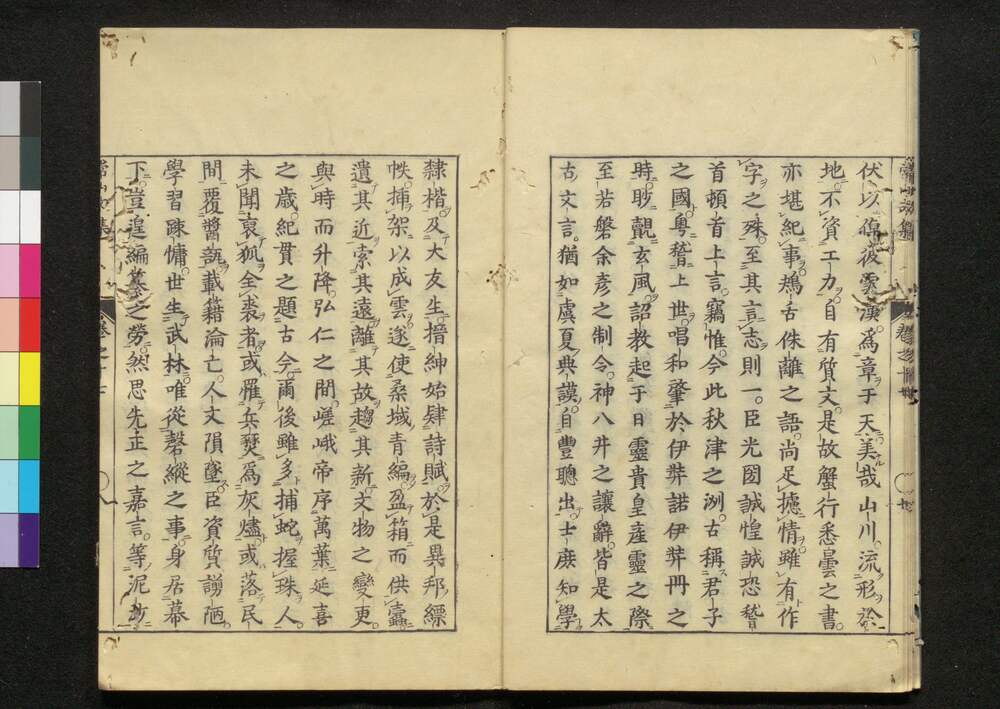 伏以倬彼雲漢爲章于天美哉山川流形於
地不資工力自有質文是故蟹行悉曇之書
亦堪紀事鴂舌侏離之語尚足攄情雖有作
字之殊至其言志則一臣光圀誠惶誠恐稽
首頓首上言竊惟今此秋津之洲古稱君子
之國粤稽上世唱和肇於伊弉諾伊弉冊之
時眇覿玄風詔教起于日靈貴皇産靈之際
至若磐余彦之制令神八井之讓辭皆是太
古文言猶如虞夏典謨自豐聰出士庶知學
隸楷及大友生搢紳始肆詩賦於是異邦縹
帙插架以成雲遂使桑域青編盈箱而供蠹
遺其近索其遠離其故趨其新文物之變更
與時而升降弘仁之間嵯峨帝序萬葉延喜
之歳紀貫之題古今爾後雖多捕蛇握珠人
未聞裒狐全裘者或罹兵燹爲灰燼或落民
間覆醬瓿載籍淪亡人文隕墜臣資質謭陋
學習踈慵世生武林唯從磬縱之事身居幕
下豈遑編纂之勞然思先正之嘉言等泥